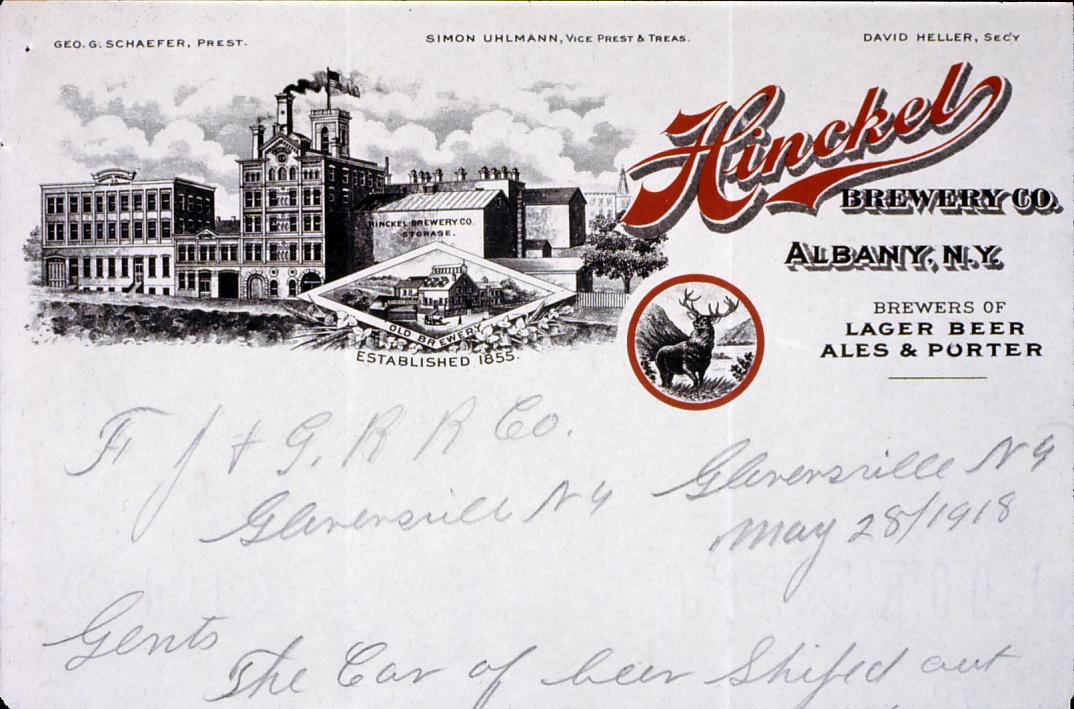 GEO. G. SCHAEFER, PREST.
SIMON UHLMANN, VICE PREST & TREAS.
DAVID HELLER, SEC'Y
Hinckel
BREWERY CO.
ALBANY, N.Y.
BREWERS OF
LAGER BEER
ALES & PORTER
HINCKEL BREWERY CO.
STORAGE.
OLD BREWERY
ESTABLISHED 1855.
F J & G. R R Co.
Gloversvill N Y
Gloversville N Y
May 28/1918
Gents
The Car of beer Shiped out